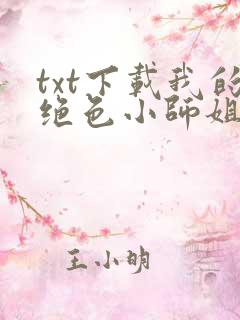 txt下載我的
绝色小師姐
王小明